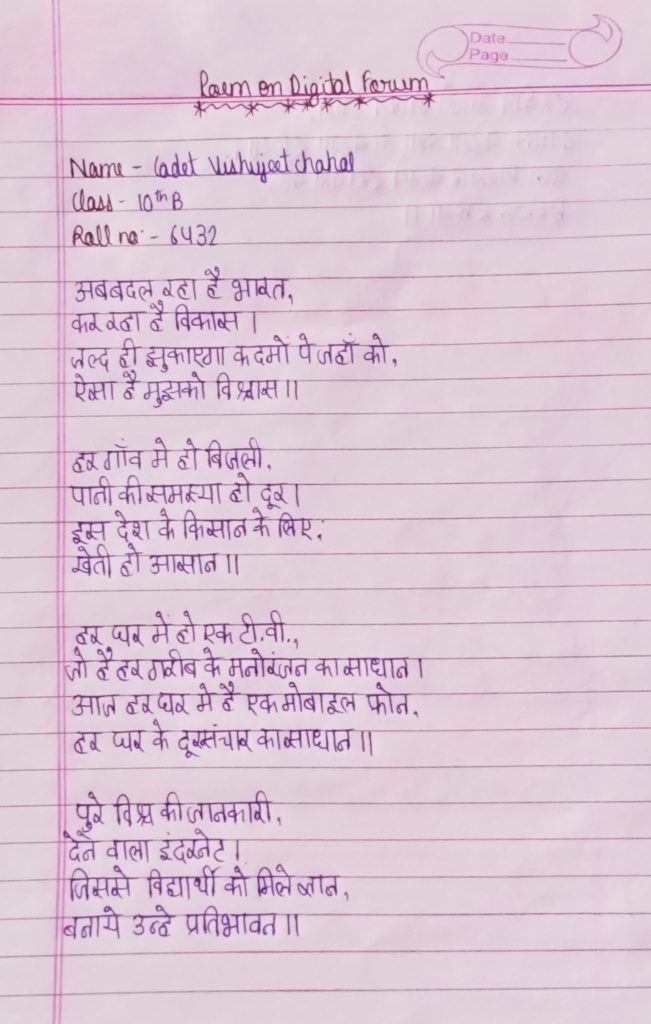 Date
Page
Poem on Digital Forum
Name - Cadet Vishvjeet chahal
Class - 10th B
Roll no :- 6432
अब बदल रहा है भारत,
कर रहा है विकास ।
जल्द ही झुकाएगा कदमों पे जहाँ को,
ऐसा है मुझको विश्वास ॥
हर गाँव मे हो बिजली,
पानी की समस्या हो दूर ।
इस देश के किसान के लिए,
खेती हो आसान ॥
हर घर में हो एक टी.वी.,
जो है हर गरीब के मनोरंजन का साधान ।
आज हर घर मे है एक मोबाइल फोन,
हर घर के दूरसंचार का साधान ॥
पुरे विश्व की जानकारी,
देने वाला इंटरनेट ।
जिससे विद्यार्थी को मिले ज्ञान,
बनाये उन्हे प्रतिभावत ॥